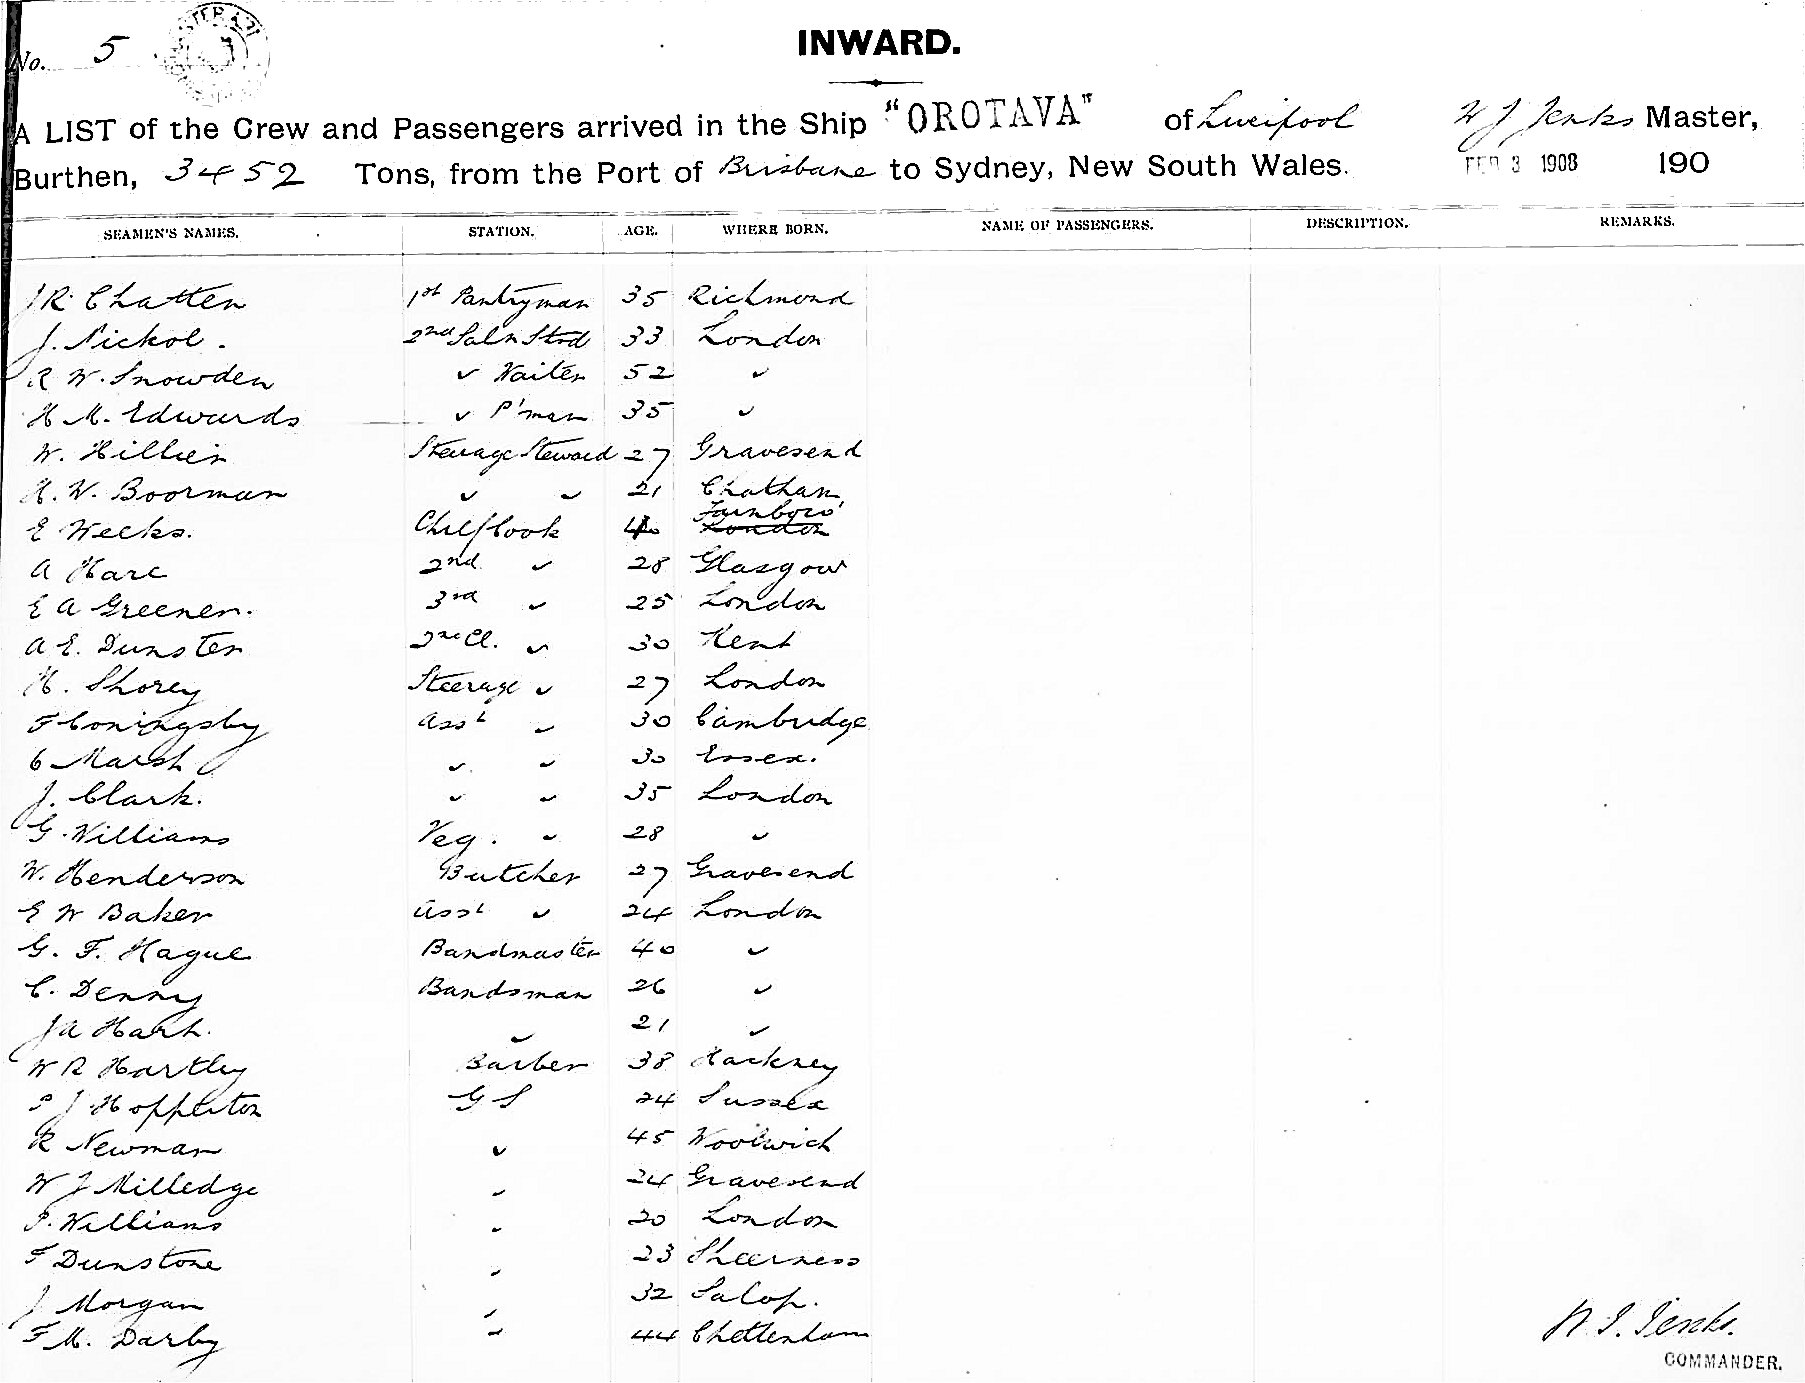 No. 5
INWARD.
A LIST of the Crew and Passengers arrived in the Ship "OROTAVA" of Liverpool W J Jenks Master,
Burthen, 3452 Tons, from the Port of Brisbane to Sydney, New South Wales. FEB 3 1908 190
SEAMEN'S NAMES. STATION. AGE. WHERE BORN. NAME OF PASSENGERS. DESCRIPTION. REMARKS.
J R. Chatten 1st Pantryman 35 Richmond
J. Nickol. 2nd Saln Stwd 33 London
R W. Snowden " Waiter 52 "
H M. Edwards " P'man 35 "
W. Hillier Steerage Steward 27 Gravesend
H. W. Boorman " " 21 Chatham
E Weeks. Chief Cook 40 Farnboro' London
A Hare 2nd " 28 Glasgow
E A Greener. 3rd " 25 London
A E. Dunster 2nd Cl. " 30 Kent
H. Shorey Steerage " 27 London
F Coningsby Asst " 30 Cambridge
C Marsh " " 30 Essex.
J. Clark. " " 35 London
G. Williams Veg. " 28 "
W. Henderson Butcher 27 Gravesend
E W Baker Asst " 24 London
G. F. Hague Bandmaster 40 "
C. Denny Bandsman 26 "
J A Hart. " 21 "
W R Hartley Barber 38 Hackney
P J Hopperton G S 24 Sussex
R Newman " 45 Woolwich
W J Milledge " 24 Gravesend
P. Williams " 20 London
F Dunstone " 23 Sheerness
J Morgan " 32 Salop.
F M. Darby " 44 Cheltenham
W. J. Jenks.
COMMANDER.